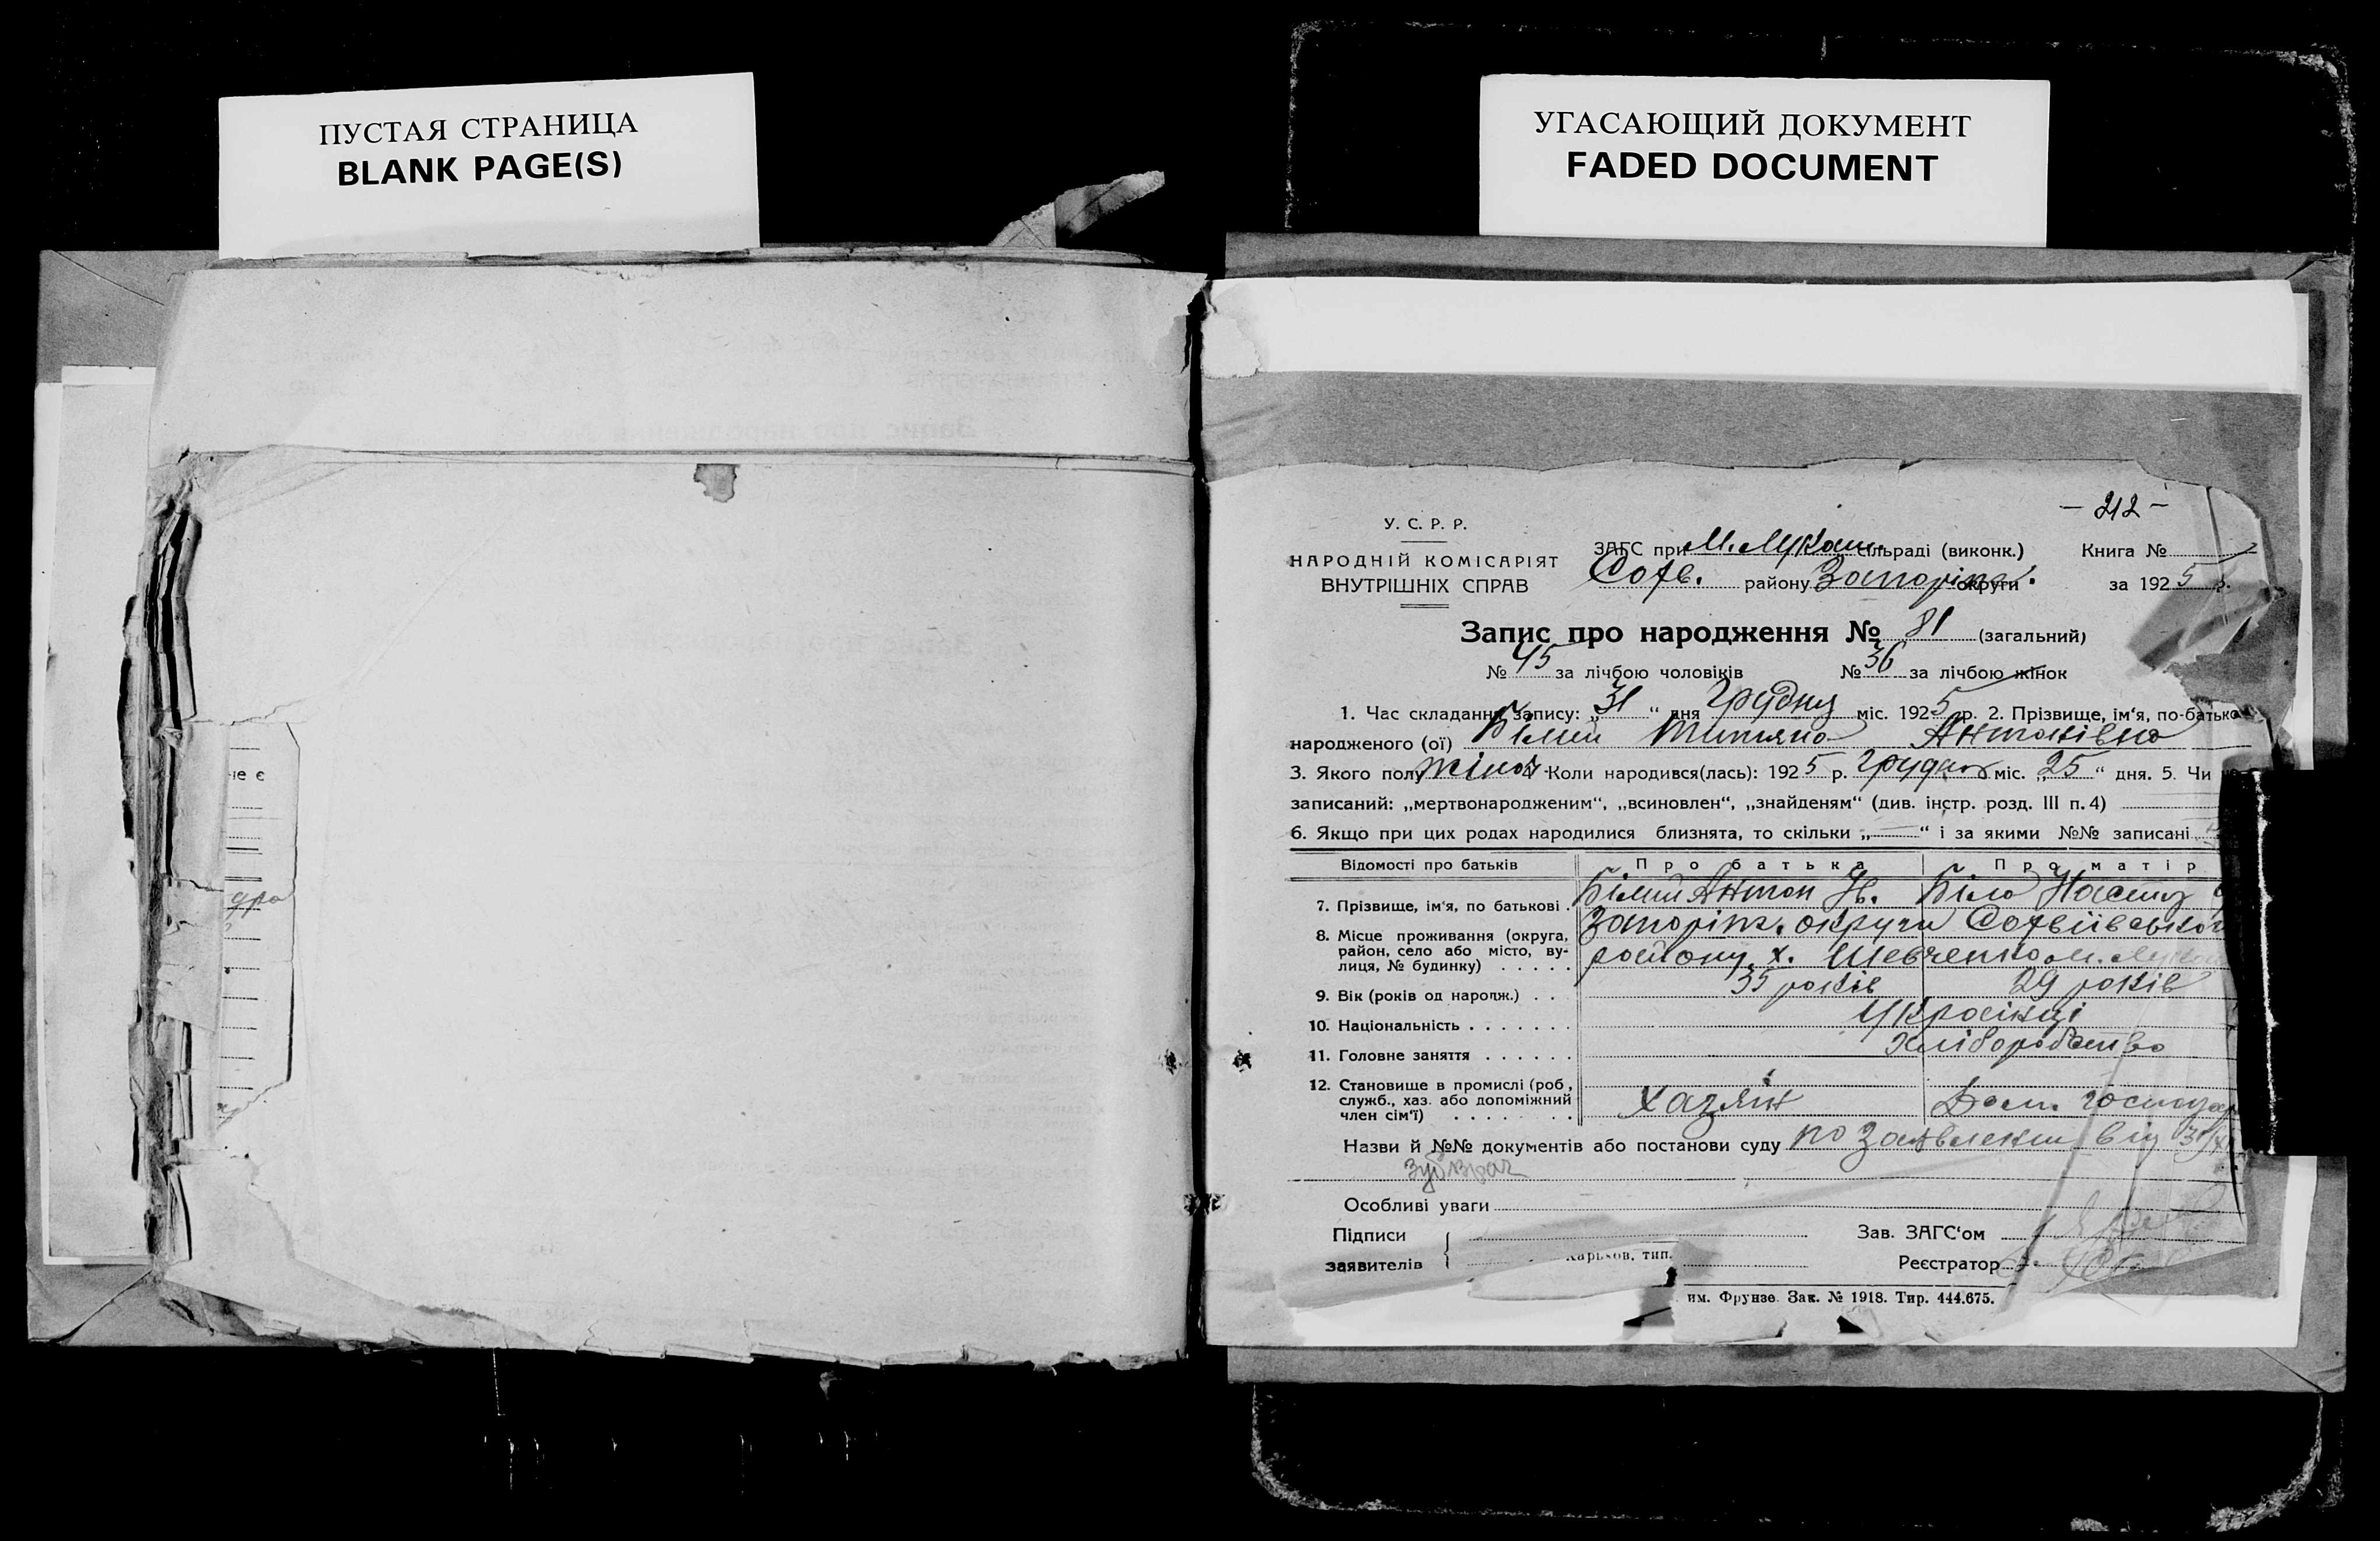 ПУСТАЯ СТРАНИЦА
BLANK PAGE(S)
УГАСАЮЩИЙ ДОКУМЕНТ
FADED DOCUMENT
не є
дра
— 212 —
У. С. Р. Р.
НАРОДНІЙ КОМІСАРІЯТ
ВНУТРІШНІХ СПРАВ
ЗАГС при М. Лукаш. сільраді (виконк.) Книга №
Софв. району Запоріж. округи за 1925 р.
Запис про народження № 81 (загальний)
№ 45 за лічбою чоловіків № 36 за лічбою жінок
1. Час складання запису: „31“ дня Грудня міс. 1925 р. 2. Прізвище, ім‘я, по-батьков
народженого (ої) Білий Титяна Антонівна
3. Якого полу жіноч. Коли народився(лась): 1925 р. грудня міс. „25“ дня. 5. Чи
записаний: „мертвонародженим“, „всиновлен“, „знайденям“ (див. інстр. розд. III п. 4)
6. Якщо при цих родах народилися близнята, то скільки „—“ і за якими №№ записані
Відомості про батьків Про батька Про матір
7. Прізвище, ім‘я, по батькові . Білий Антон Ів. Біла Настя
8. Місце проживання (округа, Запоріж. округи Софвіївського
район, село або місто, ву- району, х. Шевченко м.
лиця, № будинку) . . . . .
9. Вік (років од народж.) . . 35 років 29 років
10. Національність . . . . . . . Українці
11. Головне заняття . . . . . . Хліборобство
12. Становище в промислі (роб.,
служб., хаз. або допоміжний Хазяїн Дом. господар
член сім‘ї) . . . . . . . .
Назви й №№ документів або постанови суду по заявлению від 31/X
Особливі уваги
Підписи Зав. ЗАГС‘ом
заявителів Харьков, тип. Реєстратор
им. Фрунзе. Зак. № 1918. Тир. 444.675.